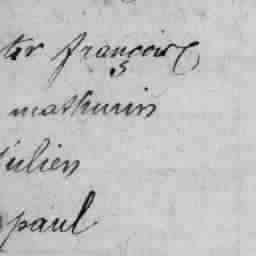 ter françois
mathurin
julien
paul